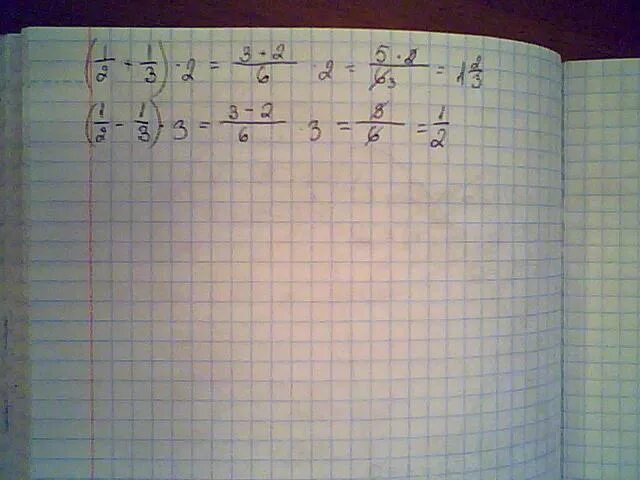 (1/2 + 1/3) · 2 = (3 + 2)/6 · 2 = (5 · 2)/6 3 = 1 2/3
(1/2 - 1/3) · 3 = (3 - 2)/6 · 3 = 3/6 = 1/2